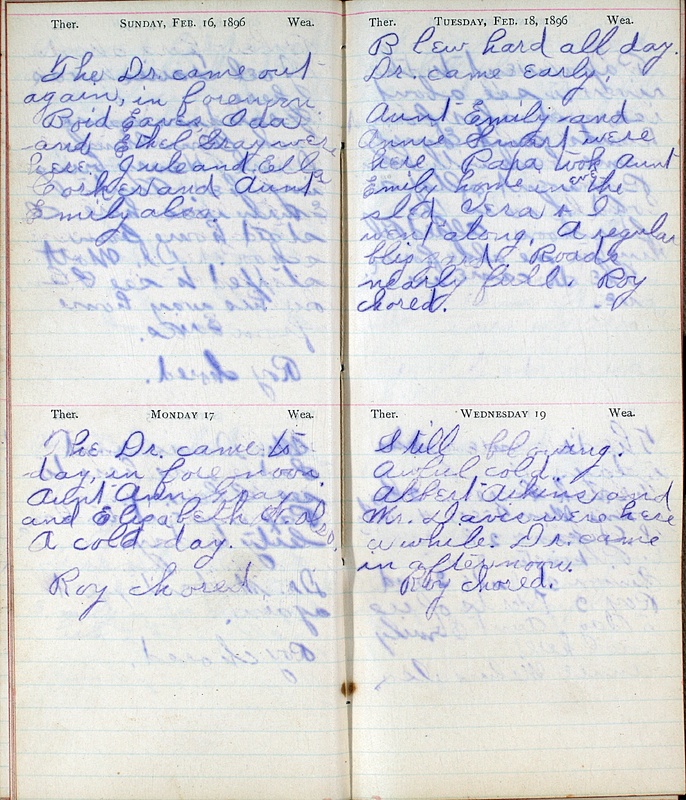 Ther. SUNDAY, FEB. 16, 1896 Wea.
The Dr. came out
again, in forenoon.
Boid Eaves, Oda
and Ethel Gray were
here. Jule and Ella
and Aunt
Emily also.
Ther. MONDAY 17 Wea.
The Dr. came to-
day, in forenoon.
Aunt Ann Gray
and Elizabeth H. also.
A cold day.
Roy chored.
Ther. TUESDAY, FEB. 18, 1896 Wea.
Blew hard all day.
Dr. came early.
Aunt Emily and
Annie Smart were
here. Papa took Aunt
Emily home in eve the
sled Vera + I
went along. A regular
blizzard. Roads
nearly full. Roy
chored.
Ther. WEDNESDAY 19 Wea.
Still blowing.
Awful cold.
Albert Aikins and
Mr. Daves were here
a while. Dr. came
in afternoon.
Roy chored.